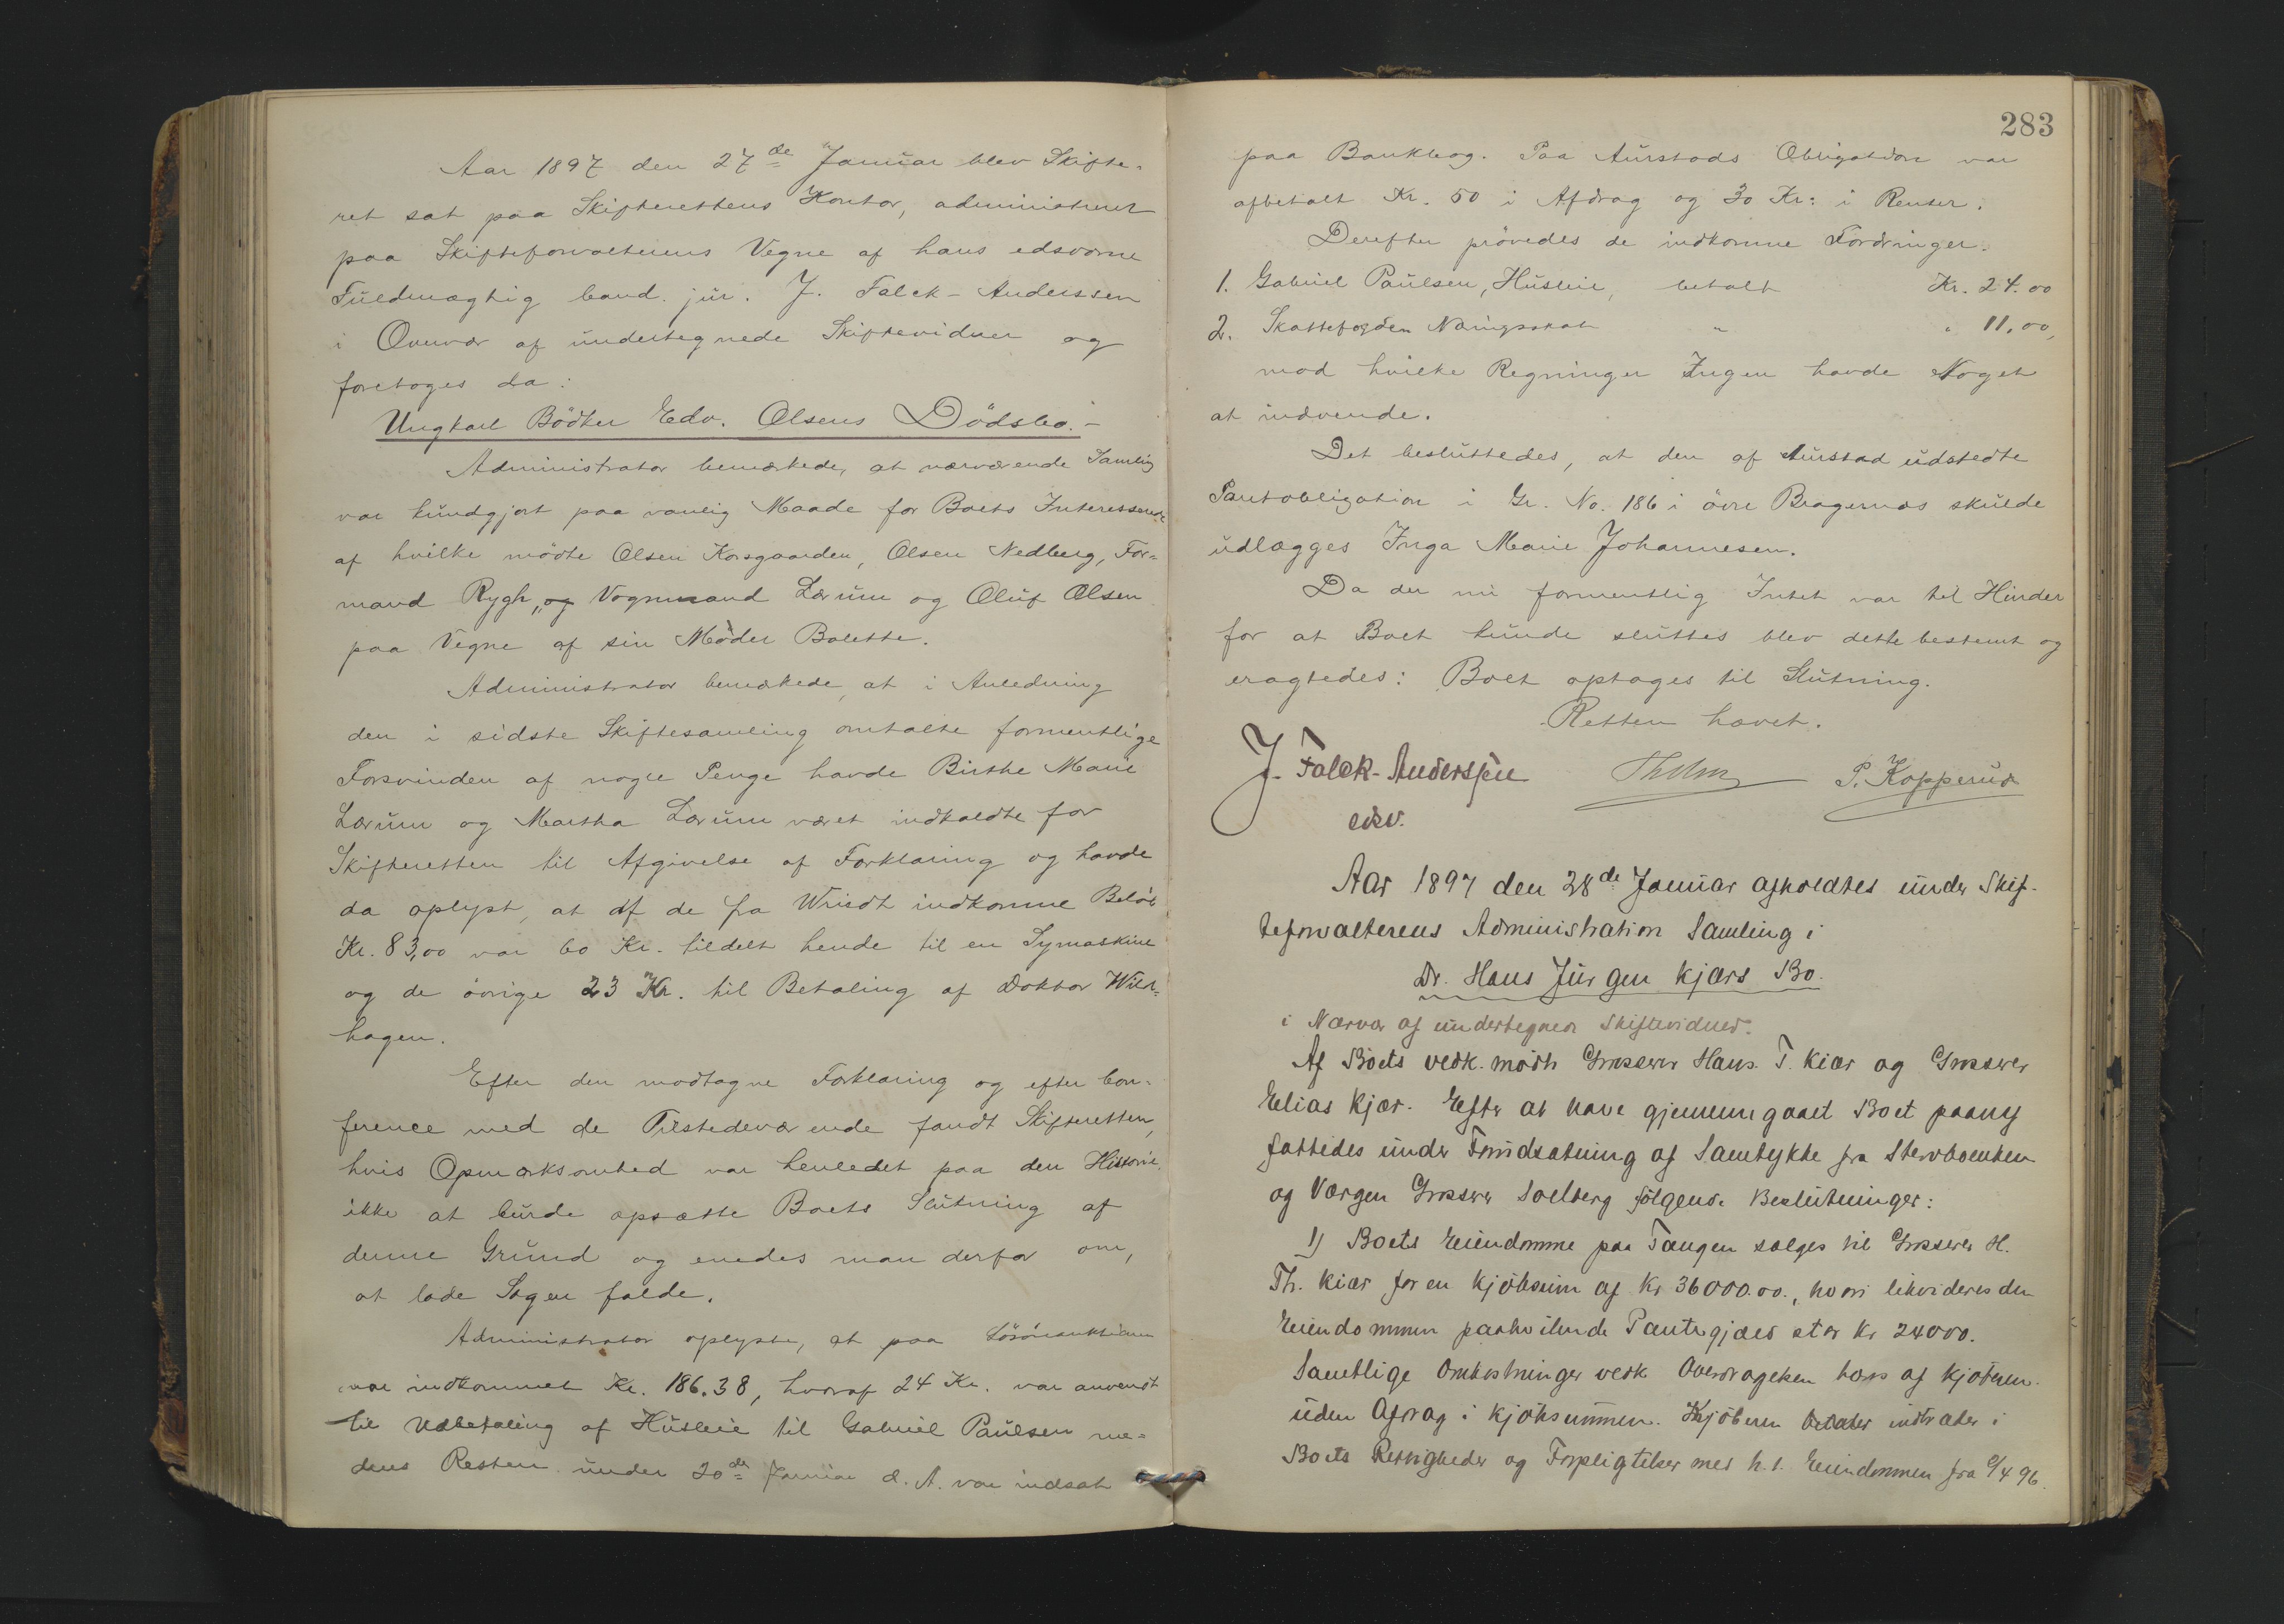 Aar 1897 den 27de Januar blev Skifte-
ret sat paa Skifterettens Kontor, administreret
paa Skifteforvalterens Vegne af hans edsvorne
Fuldmægtig Cand. jur. J. Falck-Anderssen
i Overvær af undertegnede Skiftevidner og
foretoges da:
Ungkarl Bödker Edv. Olsens Dödsbo.-
Administrator bemærkede, at nærværende Samling
var kundgjort paa vanlig Maade for Boets Interesserede
af hvilke mödte Olsen Korsgaarden, Olsen Nedberg, For-
mand Rygh, og Vognmand Lærum og Oluf Olsen
paa Vegne af sin Moder Bolette.
Administrator bemærkede, at i Anledning
den i sidste Skiftesamling omtalte formentlige
Forsvinden af nogle Penge havde Birthe Marie
Lærum og Martha Lærum været indkaldte for
Skifteretten til Afgivelse af Forklaring og havde
da oplyst, at af de fra Wriedt indkomne Belöb
Kr. 83,00 var 60 Kr. tildelt hende til en Symaskine
og de övrige 23 Kr. til Betaling af Doktor
hagen.
Efter den modtagne Forklaring og efter Con-
ference med de Tilstedeværende fandt Skifteretten,
hvis Opmærksomhed var henledet paa den Historie,
ikke at burde opsætte Boets Slutning af
denne Grund og enedes man derfor om,
at lade Sagen falde.
Administrator oplyste, at paa Lösöreauktionen
var indkommet Kr. 186.38, hvoraf 24 Kr. var anvendt
til Udbetaling af Husleie til Gabriel Paulsen me-
dens Resten under 20de Januar d. A. var indsat
283
paa Bankbog. Paa Aurstads Obligation var
afbetalt Kr. 50 i Afdrag og 30 Kr: i Renter.
Derefter prövedes de indkomne Fordringer.
1. Gabriel Paulsen, Husleie, betalt Kr. 24.00
2. Skattefogden Næringsskat " " 11,00,
mod hvilke Regninger Ingen havde Noget
at indvende.
Det besluttedes, at den af Aurstad udstedte
Pantobligation i Gr. No. 186 i övre Bragernæs skulde
udlægges Inga Marie Johannesen.
Da der nu formentlig Intet var til Hinder
for at Boet kunde sluttes blev dette bestemt og
eragtedes: Boet optages til Slutning.
Retten hævet.
J. Falck-Anderssen P. Kopperud
edsv.
Aar 1897 den 28de Januar afholdtes under Skif-
teforvalterens Administration Samling i
Dr. Hans Jürgen Kjærs Bo.
i Nærvær af undertegnede Skiftevidner.
Af Boets vedk. mödte Grosserer Hans T. Kiær og Grosserer
Elias Kjær. Efter at have gjennemgaaet Boet paany
fattedes under Forudsætning af Samtykke fra Stervboenken
og Værgen Grosserer Solberg fölgende Beslutninger:
1) Boets Eiendomme paa Tangen sælges til Grosserer H.
Th. Kiær for en Kjöbesum af Kr 36000.00., hvori likvideres den
Eiendommen paahvilende Pantegjæld stor Kr 24000.
Samtlige Omkostninger vedk Overdragelsen bæres af Kjöberen
uden Afdrag i Kjöbesummen. Kjöberen indtræder i
Boets Rettigheder og Forpligtelser med h. t. Eiendommen fra /4 96.